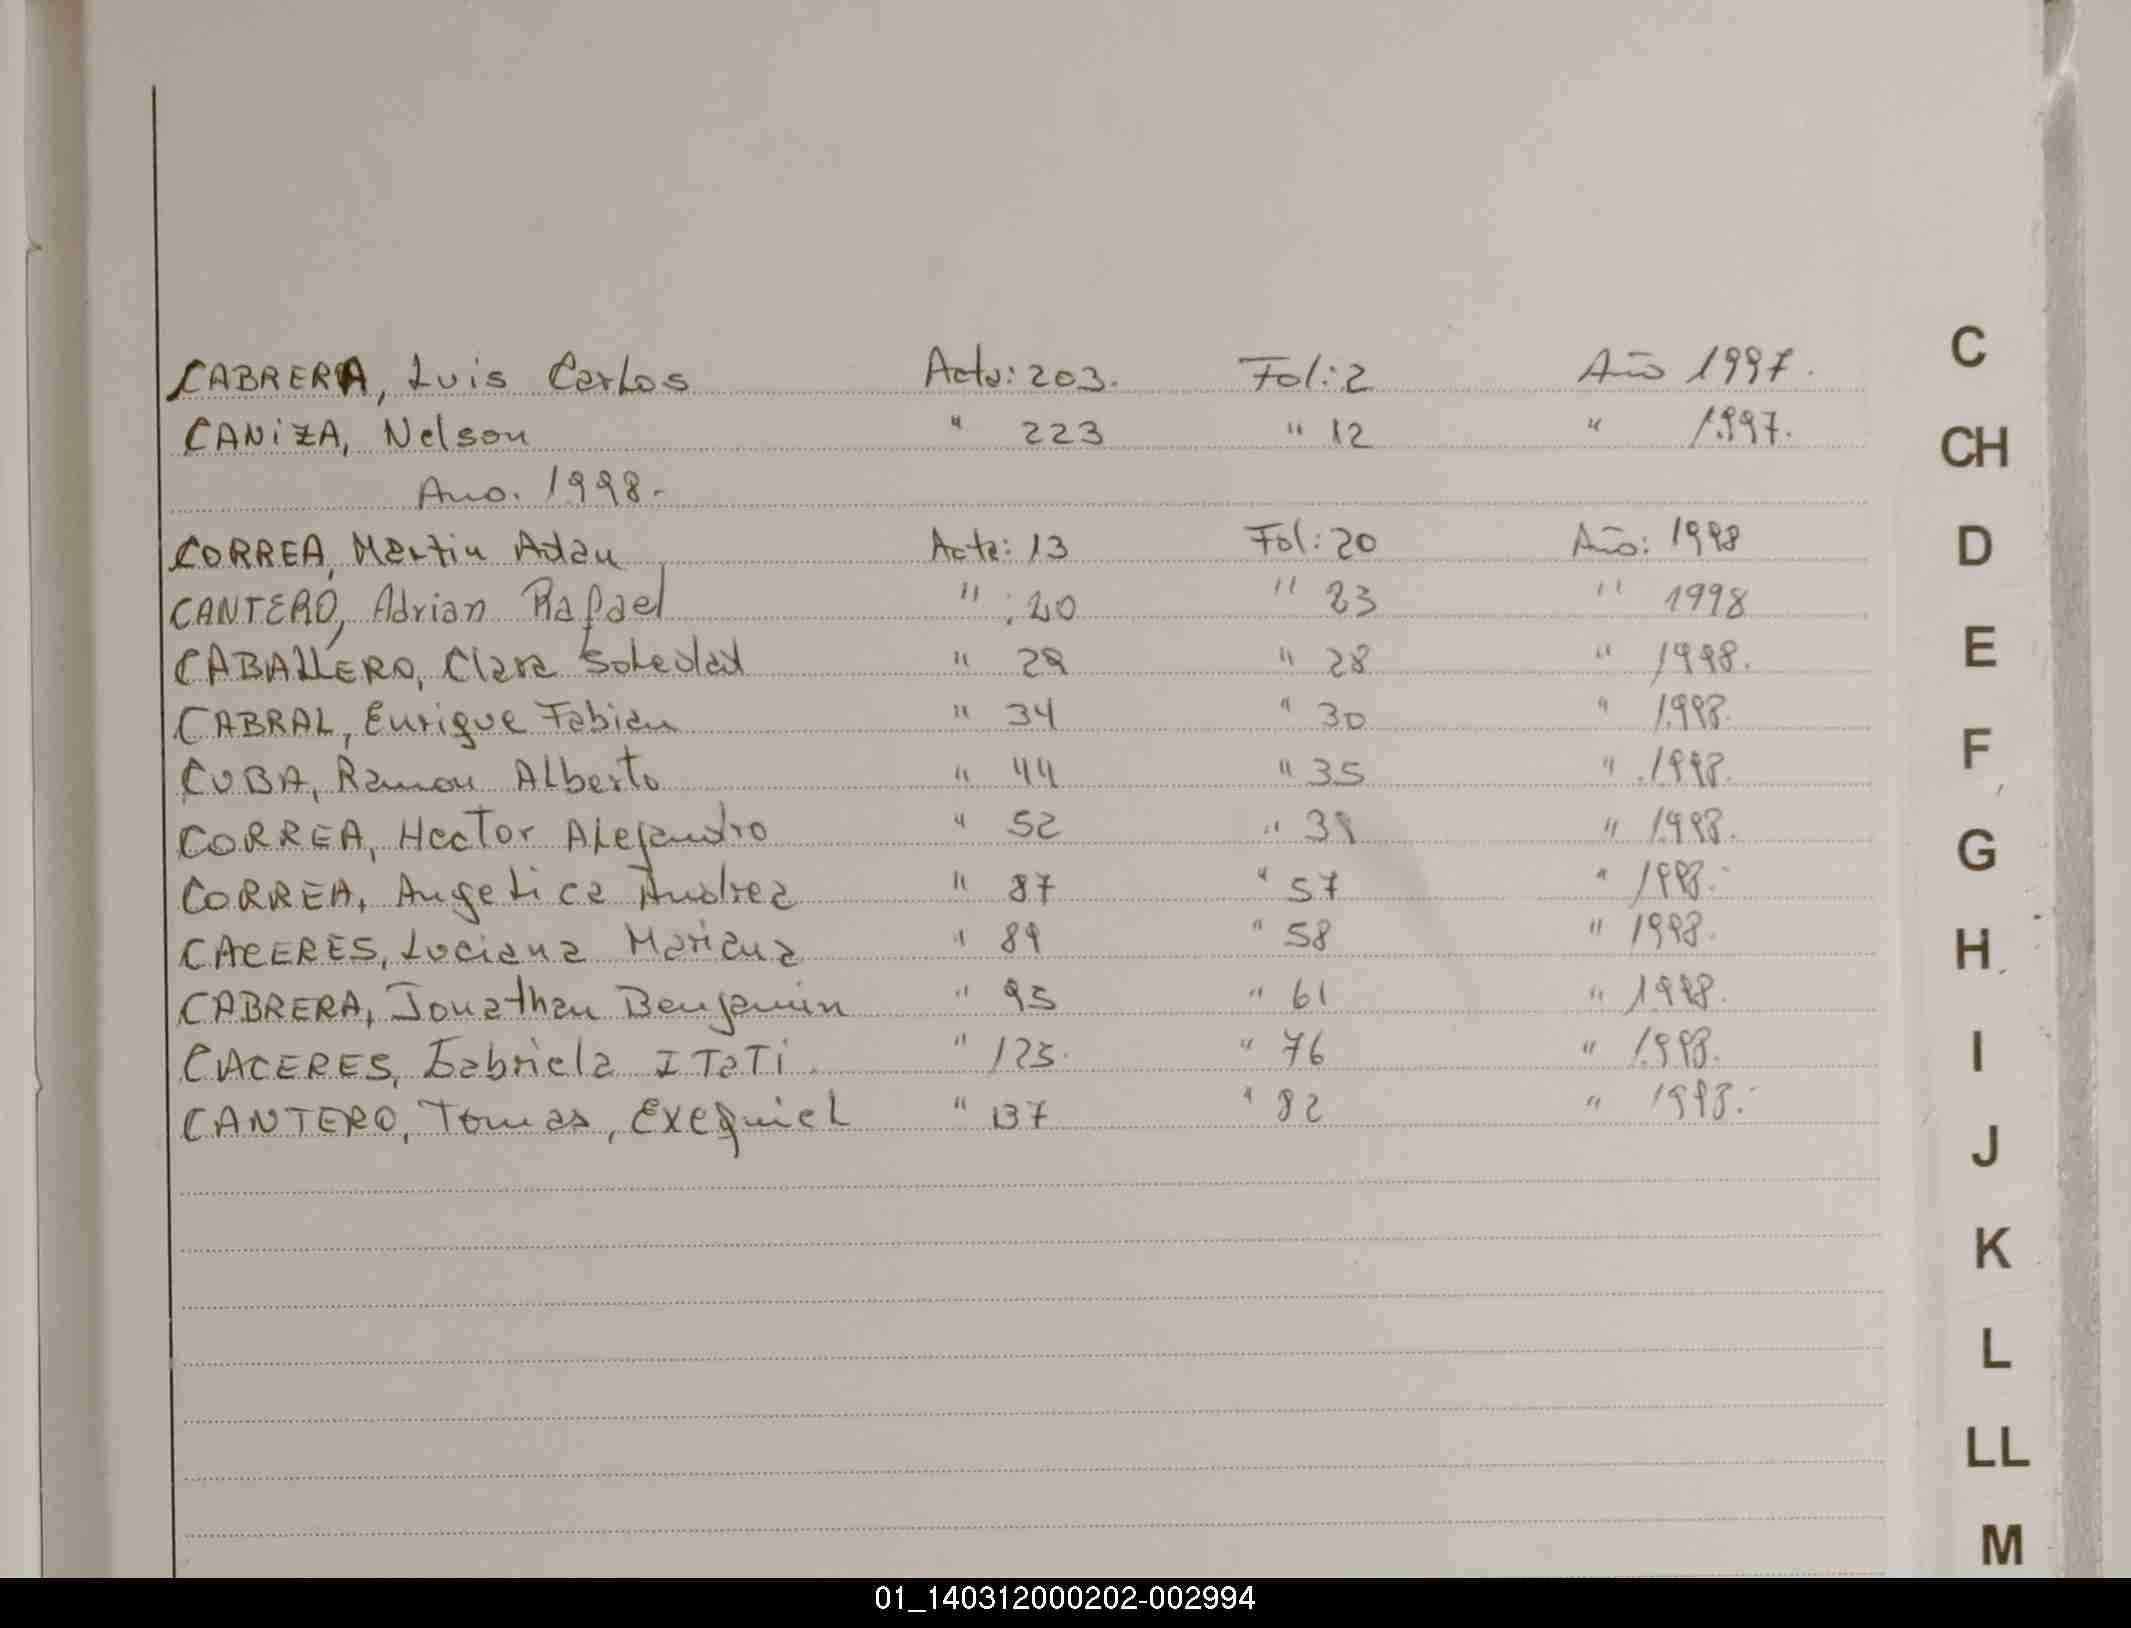 CABRERA, Luis Carlos Acta: 203. Fol: 2 Año 1997.
CANiZA, Nelson " 223 " 12 " 1997.
Año. 1998.-
CORREA, Martin Adan Acta: 13 Fol: 20 Año: 1998
CANTERO, Adrian Rafael " : 20 " 23 " 1998
CABALLERO, Clara Soledad " 29 " 28 " 1998.
CABRAL, Enrique Fabian " 34 " 30 " 1998.
CUBA, Ramon Alberto " 44 " 35 " 1998.
CORREA, Hector Alejandro " 52 " 39 " 1998.
CORREA, Angelica Andrea " 87 " 57 " 1998.-
CACERES, Luciana Mariana " 89 " 58 " 1998.
CABRERA, Jonathan Benjamin " 95 " 61 " 1998.
CACERES, Gabriela ITaTi. " 125. " 76 " 1998.
CANTERO, Tomas, Exequiel " 137 " 82 " 1998.-
C
CH
D
E
F
G
H
I
J
K
L
LL
M
01_140312000202-002994